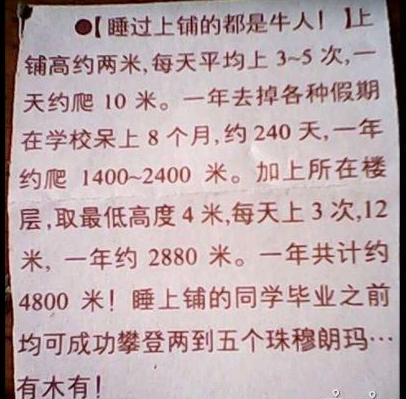 ●【睡过上铺的都是牛人！】上
铺高约两米,每天平均上 3~5 次,一
天约爬 10 米。一年去掉各种假期
在学校呆上 8 个月,约 240 天,一年
约爬 1400~2400 米。加上所在楼
层,取最低高度 4 米,每天上 3 次,12
米, 一年约 2880 米。一年共计约
4800 米！睡上铺的同学毕业之前
均可成功攀登两到五个珠穆朗玛…
有木有！